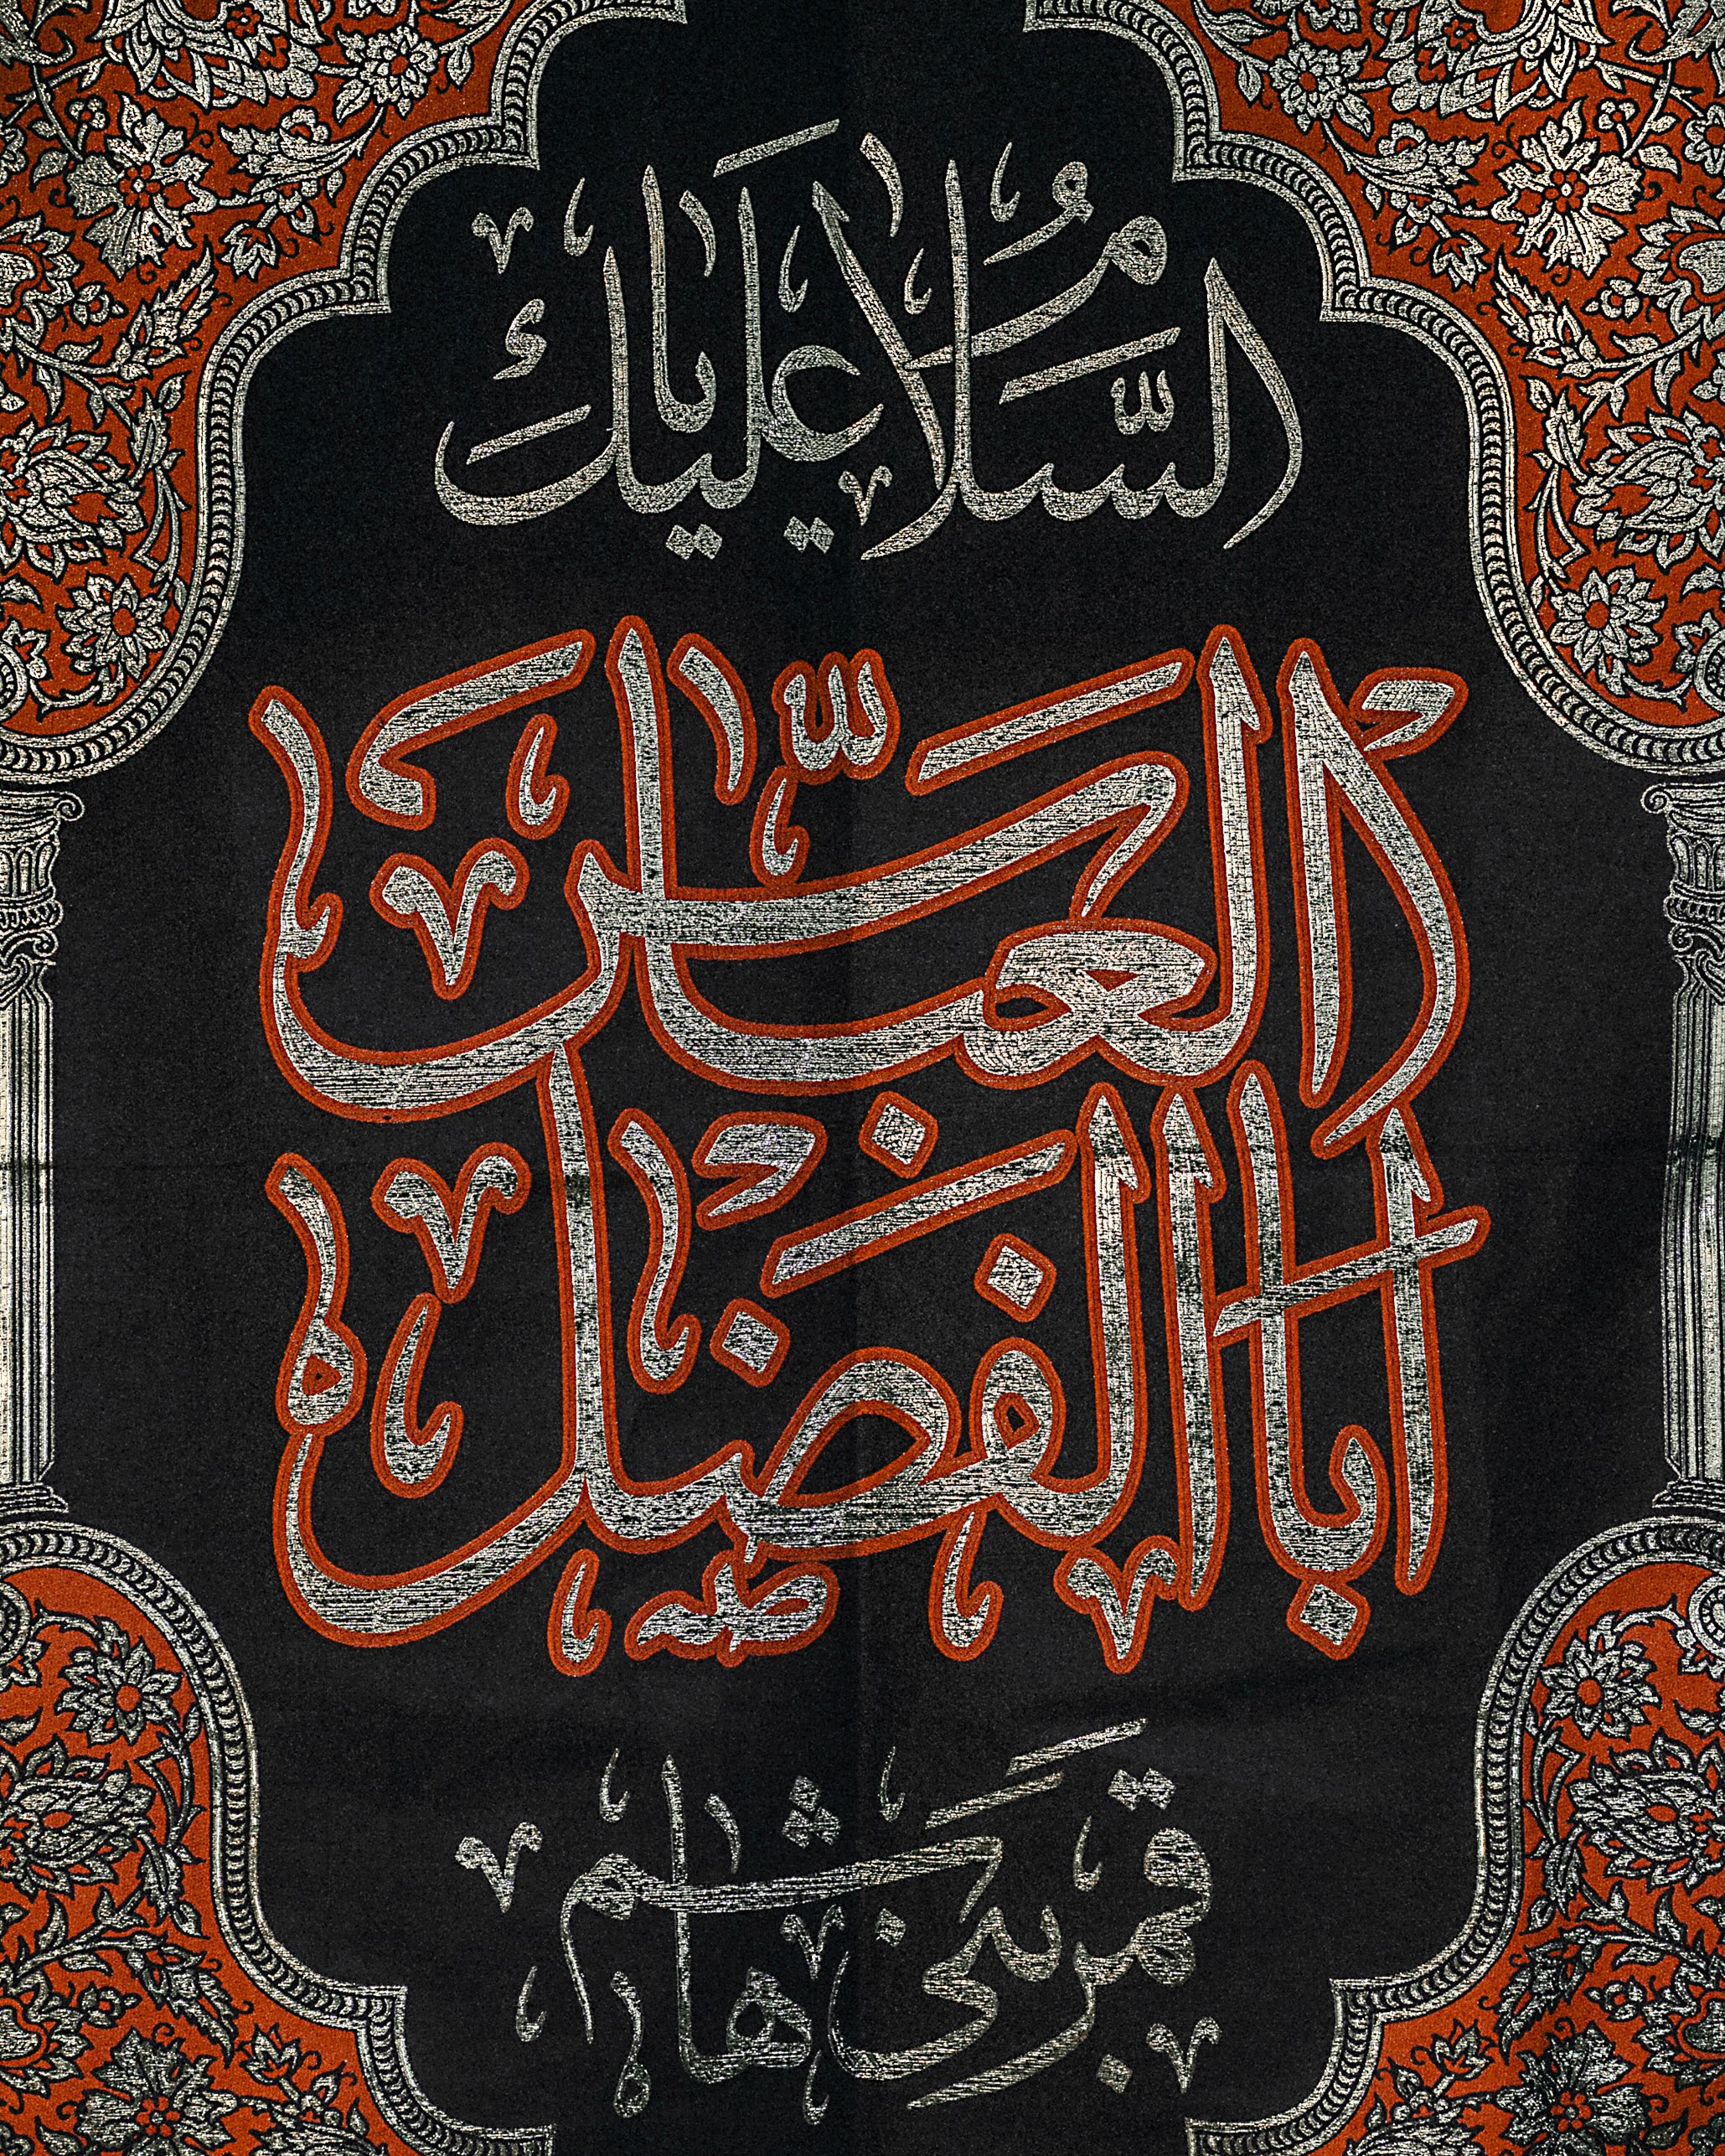 السَّلامُ عَلَيكَ يا
أبا الفَضلِ العَبّاس
قمر بنی هاشم